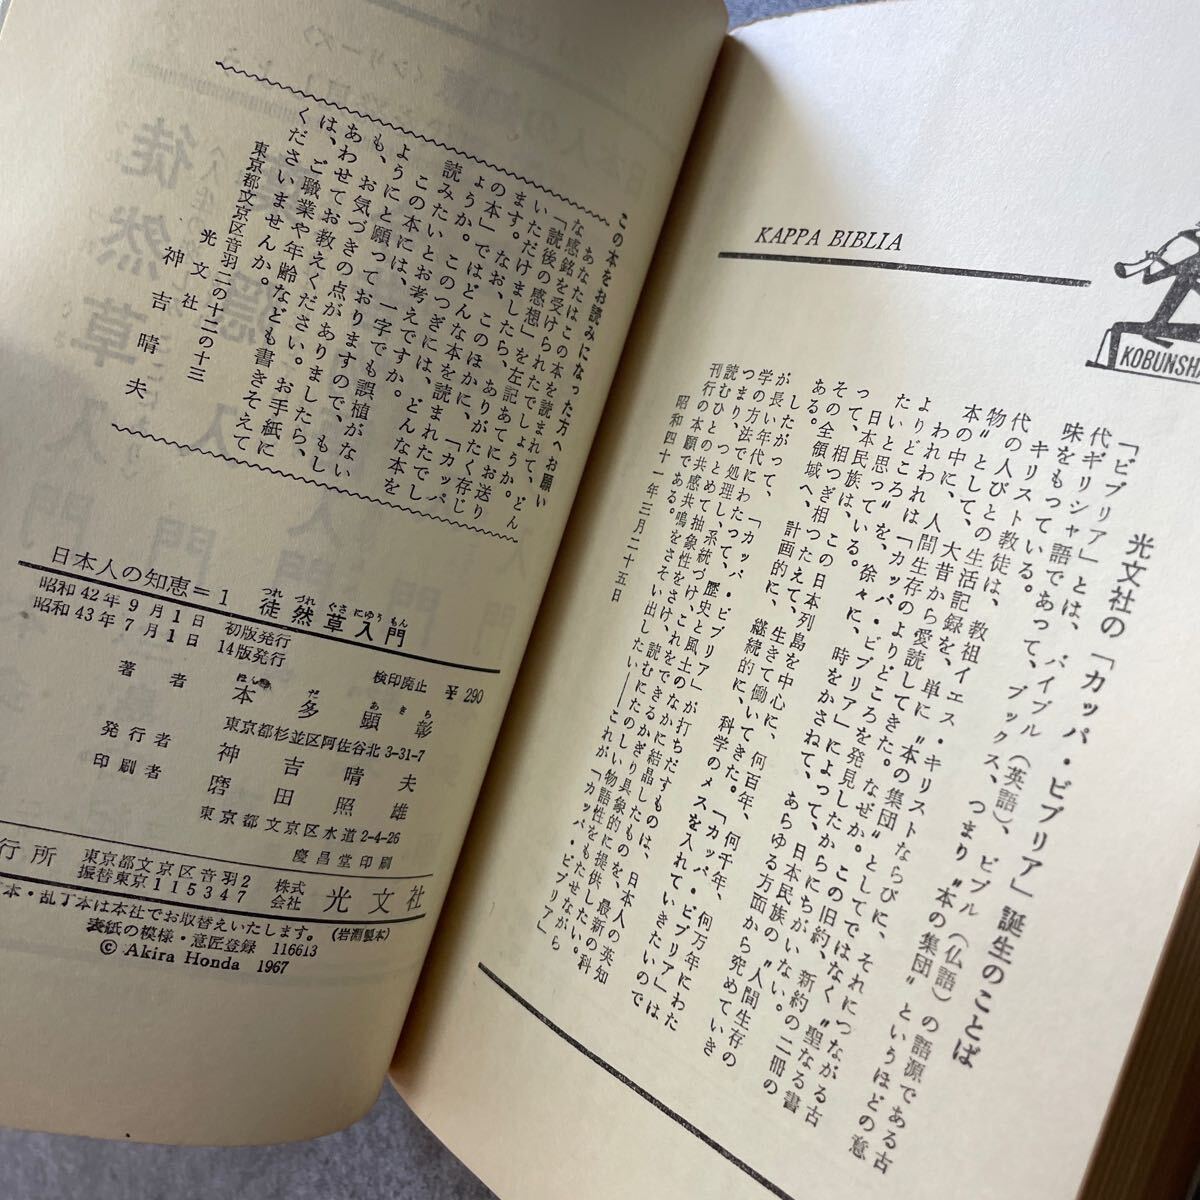 KAPPA BIBLIA
KOBUNSHA
光文社の「カッパ・ビブリア」誕生のことば
「ビブリア」とは、バイブル（英語）、ビブル（仏語）の語源である古
代ギリシャ語であって、ブックス、つまり〝本の集団〟というほどの意
味をもっている。
キリスト教徒は、教祖イエス・キリストならびに、それにつながる古
代の人びとの生活記録を、単に〝本の集団〟としてではなく〝聖なる書
物〟として、大昔から愛読してきた。なぜか。この旧約、新約の二冊の
本の中に、人間生存のよりどころを発見したからにちがいない。
われわれは「カッパ・ビブリア」によって、あらゆる方面の〝人間生存の
よりどころ〟を、徐々に、時をかさねて、日本民族から究めていき
たいと思っている。
日本民族は、この日本列島を中心に、何百年、何千年、何万年にわた
って、相つぎ相つたえて、生きて働いてきた。「カッパ・ビブリア」は
その全領域へ、計画的に、継続的に、科学のメスを入れていきたいので
ある。
したがって、「カッパ・ビブリア」が打ちだすものは、日本人の
が長い年代にわたって、歴史と風土のなかに結晶したものを、最新の科
学の方法で処理し、系統づけ、これをできるかぎり具象的に提供したい。
つまり、つとめて抽象性をさけ、読むにたのしい物語性をもたせながら
読むひとの共感共鳴をさそい出したい――これが「カッパ・ビブリア」
刊行の本願である。
昭和四十一年三月二十五日
この本をお読みになった方へお願い
あなたはこの本を読まれて、どん
な感銘を受けられたでしょうか。
「読後の感想」を左記あてにお送り
いただけましたら、ありがたく存じ
ます。なお、このほかに、「カッパ
の本」ではどんな本を読まれたでし
ょうか。このつぎには、どんな本を
読みたいとお考えですか。
この本には、一字でも誤植がない
ようにと願っておりますので、もし
も、お気づきの点がありましたら、
あわせてお教えください。お手紙に
は、ご職業や年齢なども書きそえて
くださいませんか。
東京都文京区音羽二の十二の十三
光文社
神吉晴夫
日本人の知恵=1 徒然草入門
つれ づれ ぐさ にゅう もん
昭和42年9月1日 初版発行
昭和43年7月1日 14版発行
検印廃止 ¥290
著者 本多顕彰
ほん だ あきら
東京都杉並区阿佐谷北3-31-7
発行者 神吉晴夫
印刷者 田照雄
東京都文京区水道2-4-26
慶昌堂印刷
行所 東京都文京区音羽2 株式会社 光文社
振替東京115347
本・乱丁本は本社でお取替えいたします。(岩淵製本)
表紙の模様・意匠登録 116613
© Akira Honda 1967